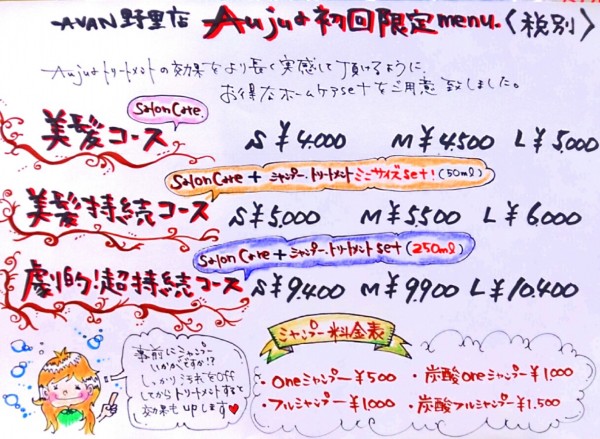 AVAN 野里店 Aujua初回限定menu.〈税別〉
Aujuaトリートメントの効果をより長く実感して頂けるように
お得なホームケアsetをご用意致しました。
Salon Care
美髪コース S ¥4.000 M ¥4.500 L ¥5.000
Salon Care + シャンプー.トリートメントミニサイズset!(50ml)
美髪持続コース S ¥5.000 M ¥5.500 L ¥6.000
Salon Care + シャンプー.トリートメントset(250ml)
劇的!超持続コース S ¥9.400 M ¥9.900 L ¥10.400
シャンプー料金表
事前にシャンプー
いかがですか!?
しっかり汚れをoff
してからトリートメントすると
効果もupします♥
・oneシャンプー¥500 ・炭酸oneシャンプー¥1.000
・フルシャンプー¥1.000 ・炭酸フルシャンプー¥1.500